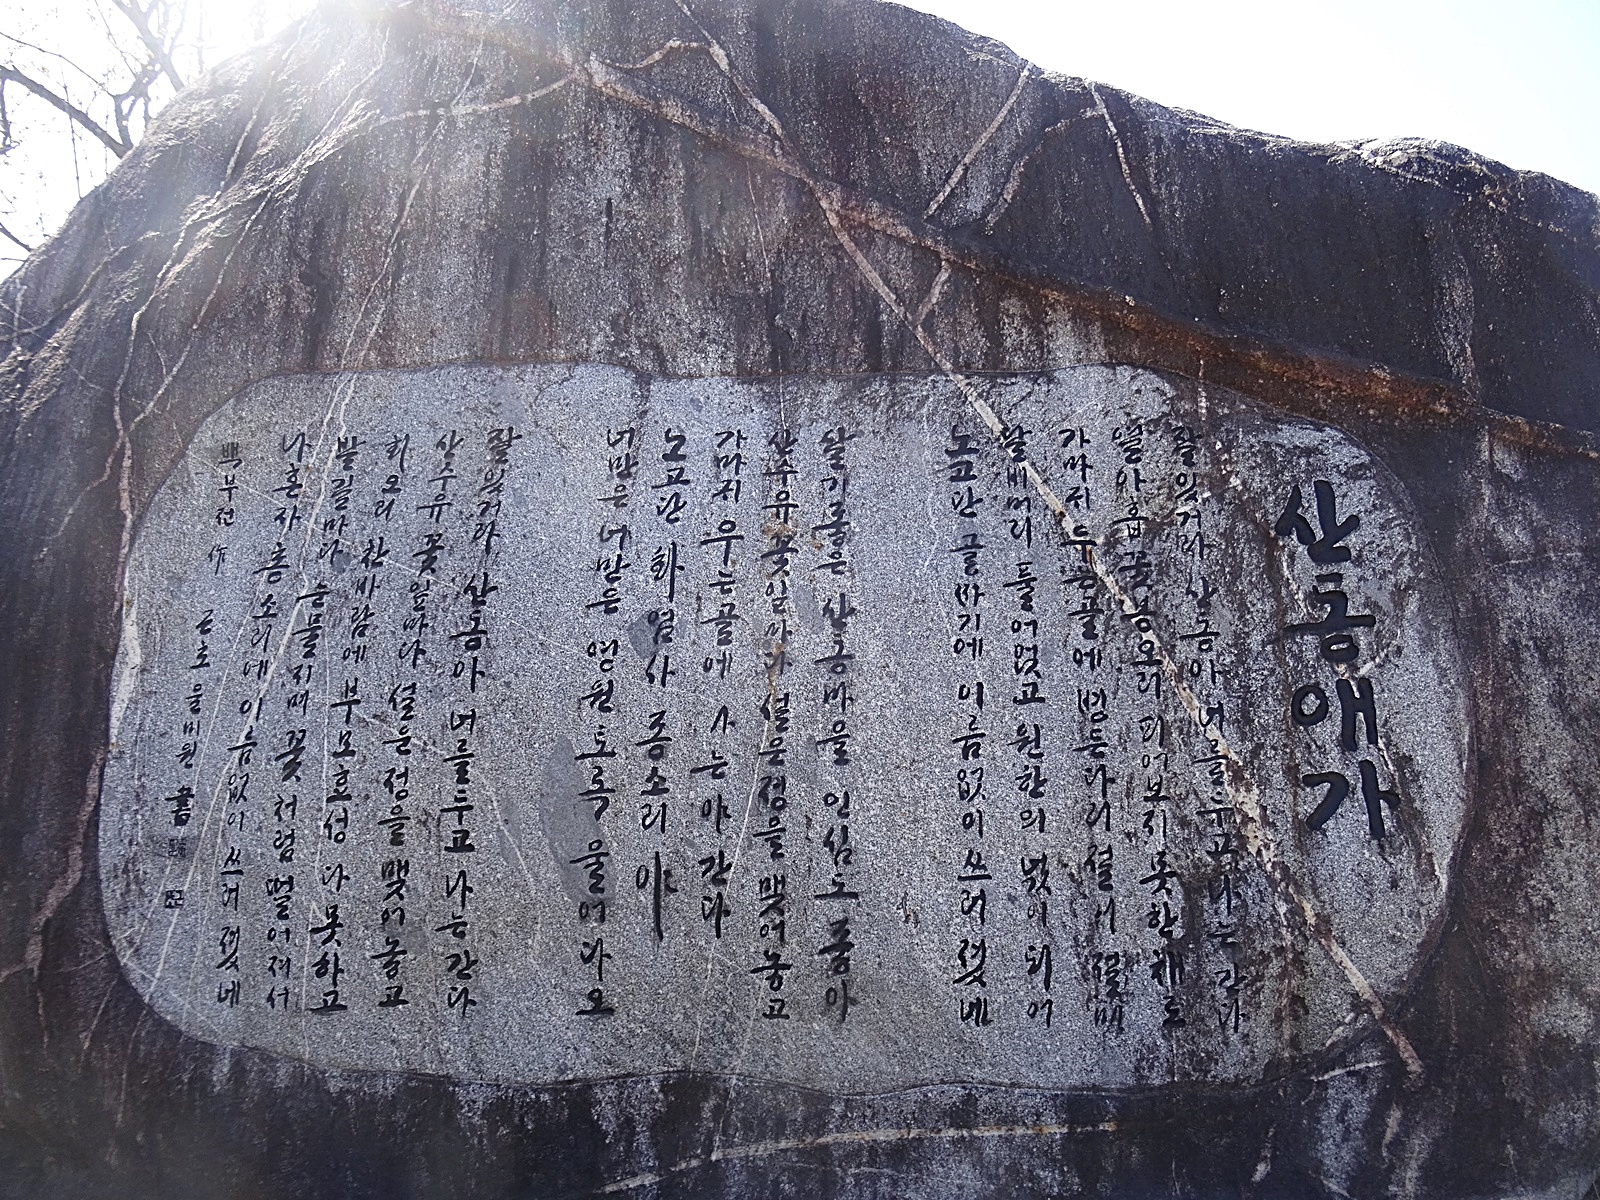 산동애가
잘있거라 산동아 너를두고 나는간다
열아홉 꽃봉오리 피어보지 못한채로
가마귀 우는골에 병든다리 절며 절며
달비머리 풀어얹고 원한의 넋이 되어
노고단 골짜기에 이름없이 쓰러졌네
살기좋은 산동마을 인심도 좋아
산수유 꽃잎마다 설은정을 맺어놓고
가마귀 우는골에 나는야 간다
노고단 화엄사 종소리야
너만은 너만은 영원토록 울어다오
잘있거라 산동아 너를두고 나는간다
산수유 꽃잎마다 설은정을 맺어놓고
회오리 찬바람에 부모효성 다못하고
발길마다 눈물지며 꽃처럼 떨어져서
나혼자 총소리에 이름없이 쓰러졌네
백부전 作 書